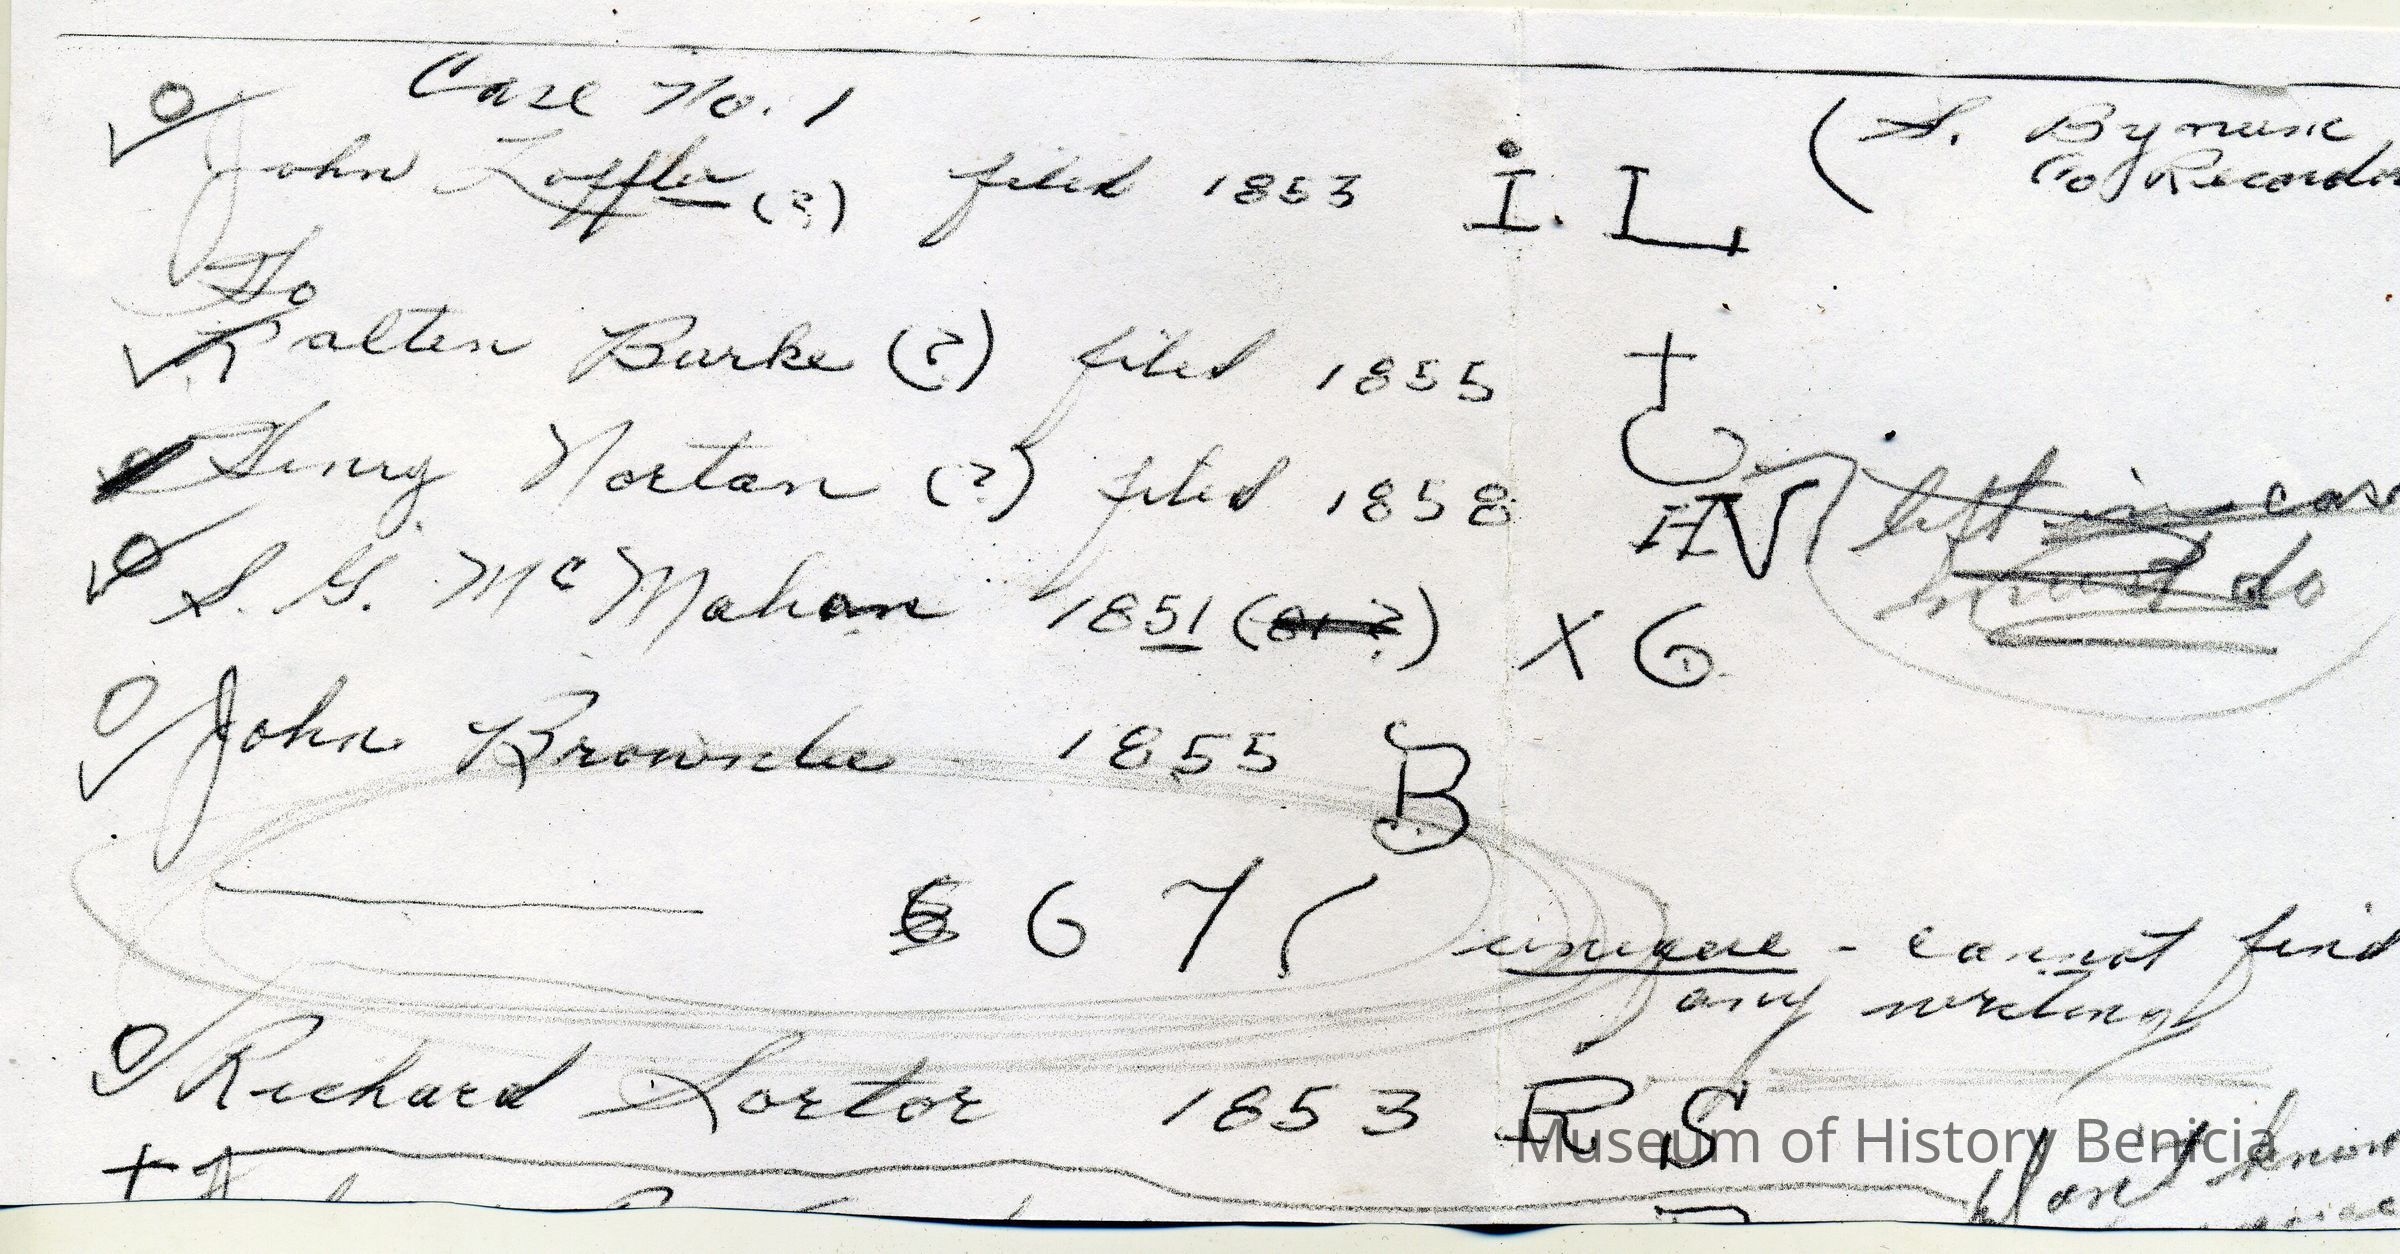 Case No. 1
(S. Bynum
Co Recorder
John Loffler (?) filed 1853 I. L
To
Palten Burke (?) filed 1855
Henry Norton (?) filed 1858 HV left in case
do
S. G. McMahan 1851 (81 ?) X G
John Brownlee 1855 B
6 7 ( unique - cannot find
any writing)
Richard Sortor 1853 R S
Don't know
Museum of History Benicia